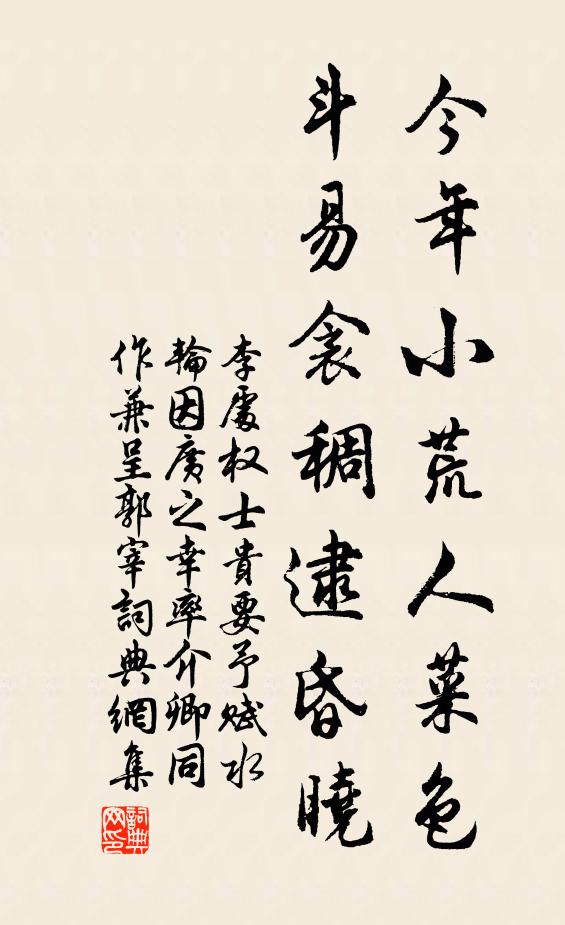 今年小荒人菜色
斗易衾稠逮昏曉
李處权士貴要予賦水
輪因廣之幸率介卿同
作兼呈郭宰詞典網集
詞典网印